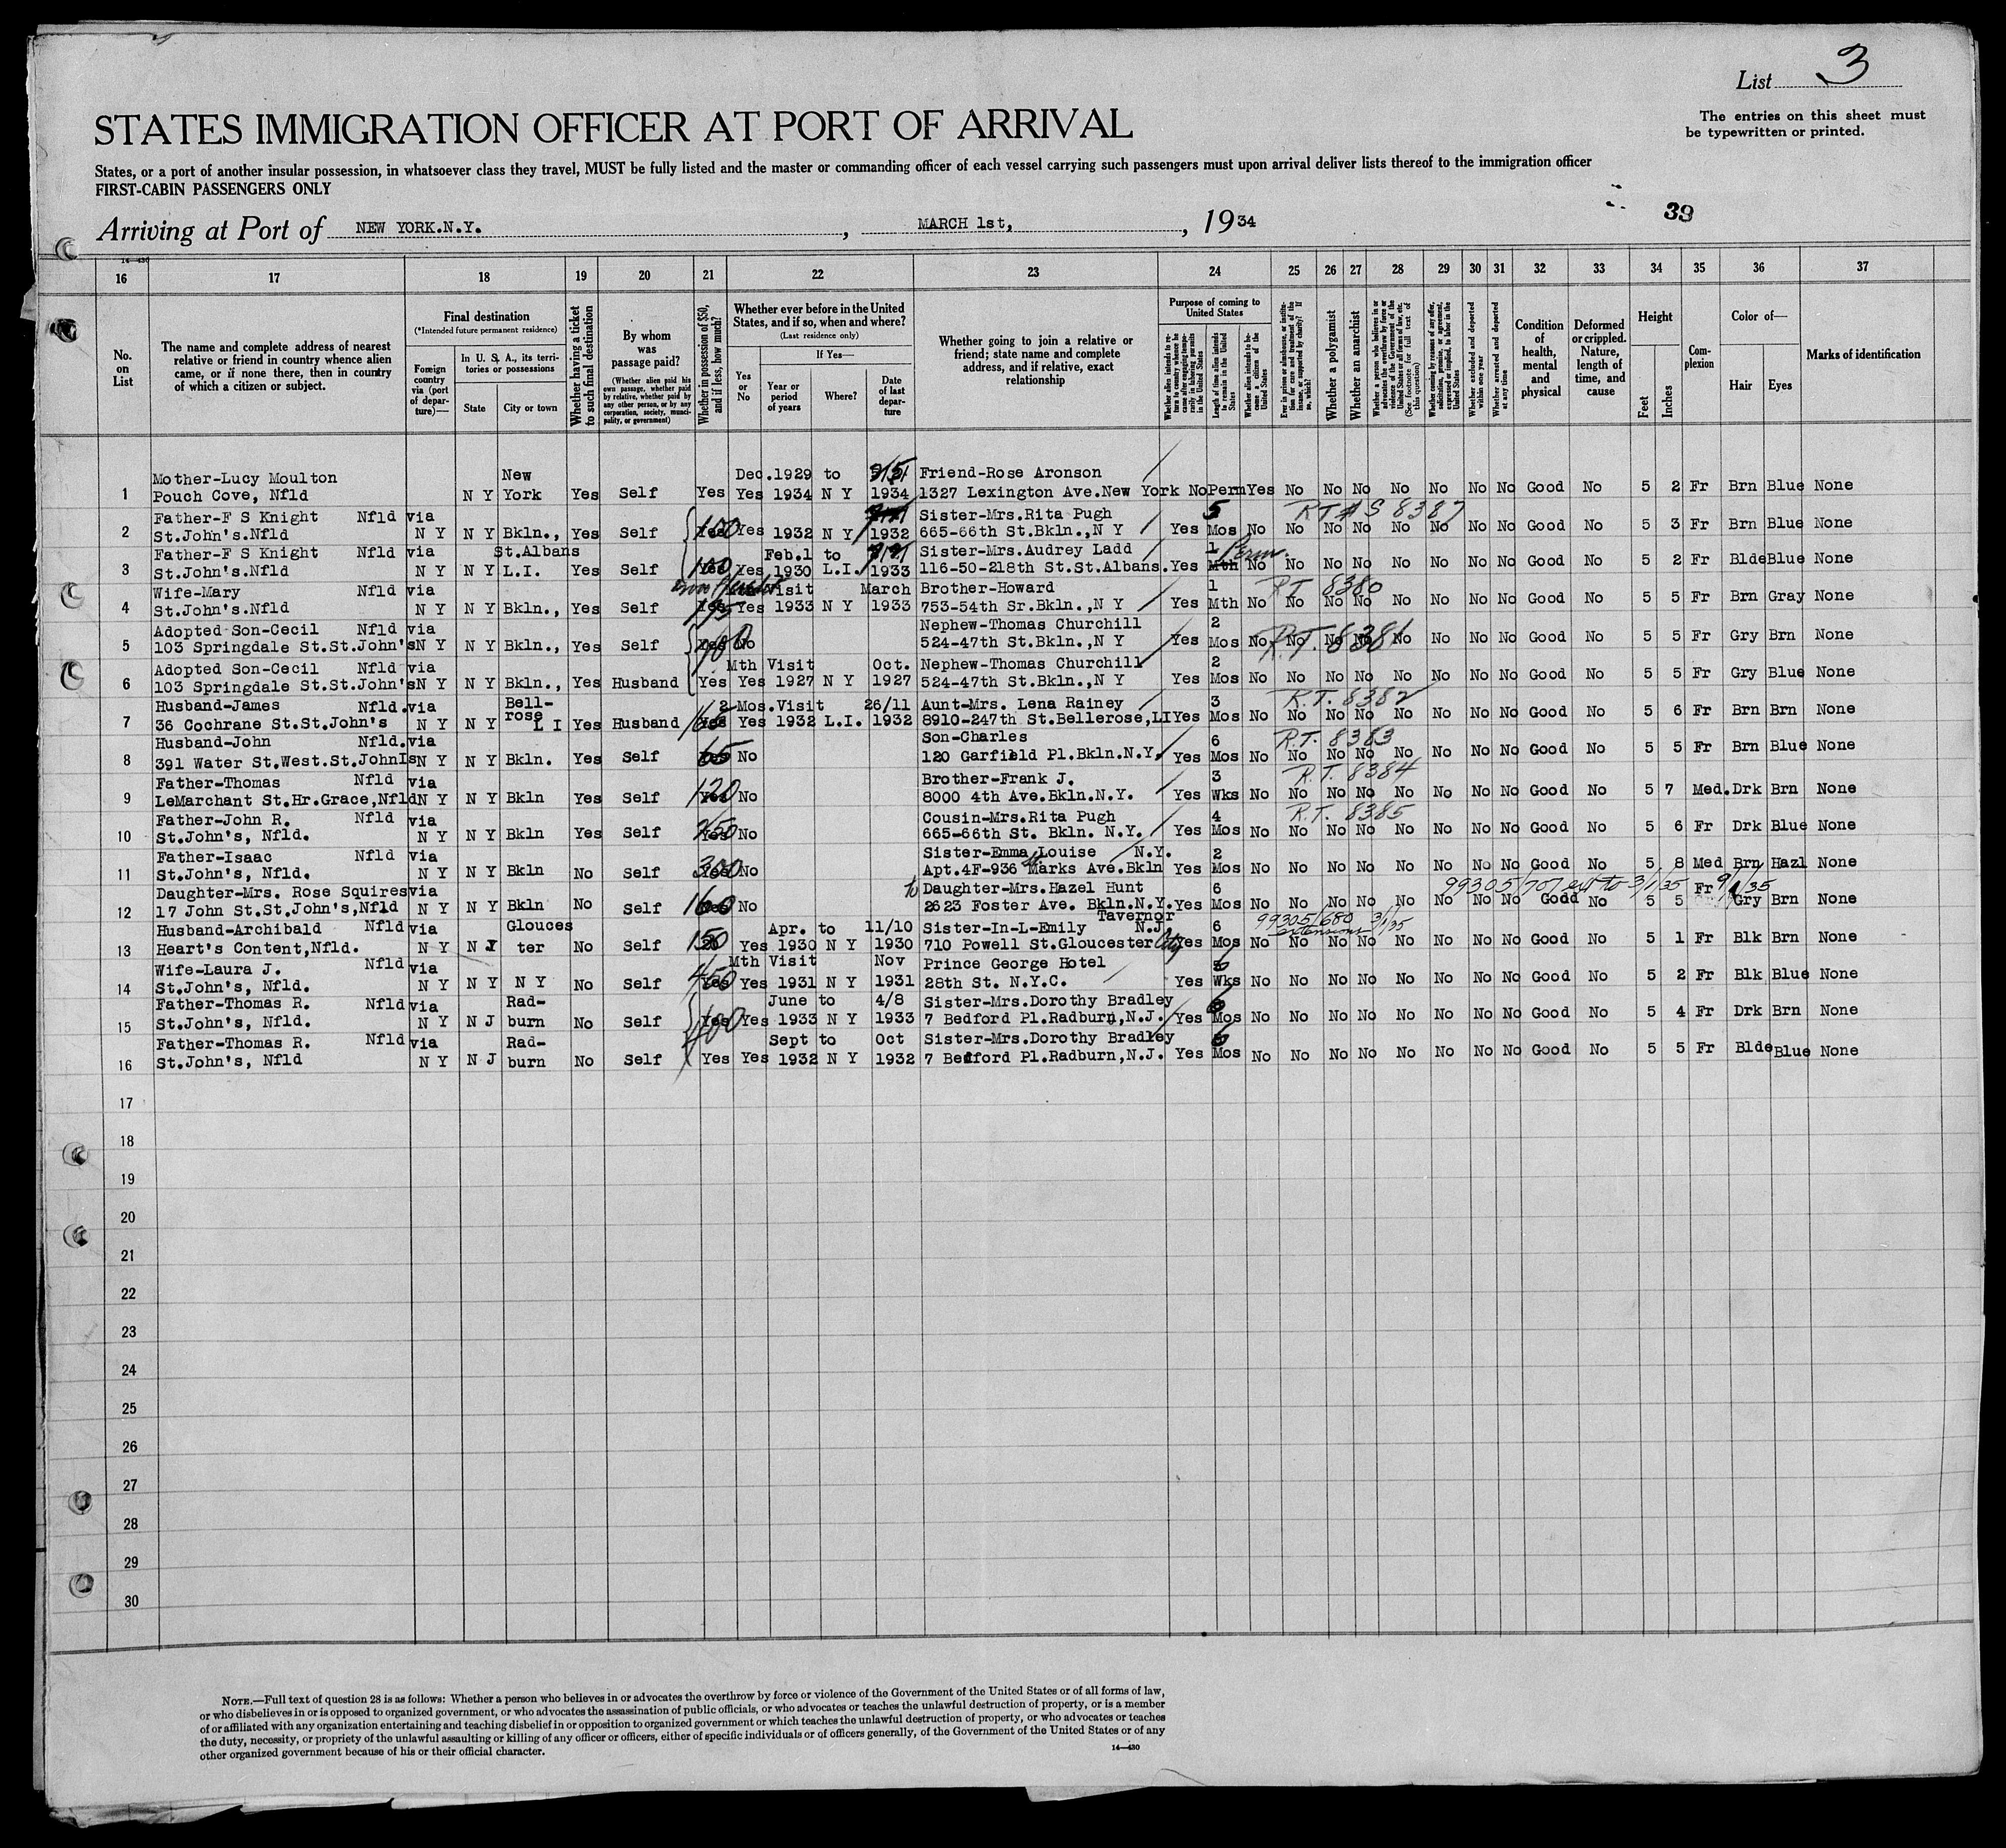 List 3
The entries on this sheet must
be typewritten or printed.
STATES IMMIGRATION OFFICER AT PORT OF ARRIVAL
States, or a port of another insular possession, in whatsoever class they travel, MUST be fully listed and the master or commanding officer of each vessel carrying such passengers must upon arrival deliver lists thereof to the immigration officer
FIRST-CABIN PASSENGERS ONLY
39
Arriving at Port of NEW YORK.N.Y. , MARCH 1st, , 1934
14—430
16 17 18 19 20 21 22 23 24 25 26 27 28 29 30 31 32 33 34 35 36 37
No. on List
The name and complete address of nearest relative or friend in country whence alien came, or if none there, then in country of which a citizen or subject.
Final destination
(*Intended future permanent residence)
Foreign country via (port of departure)—
In U. S. A., its territories or possessions
State
City or town
Whether having a ticket to such final destination
By whom was passage paid?
(Whether alien paid his own passage, whether paid by relative, whether paid by any other person, or by any corporation, society, municipality, or government)
Whether in possession of $50, and if less, how much?
Whether ever before in the United States, and if so, when and where?
(Last residence only)
Yes or No
If Yes—
Year or period of years
Where?
Date of last departure
Whether going to join a relative or friend; state name and complete address, and if relative, exact relationship
Purpose of coming to United States
Whether alien intends to return to country whence he came after engaging temporarily in laboring pursuits in the United States
Length of time alien intends to remain in the United States
Whether alien intends to become a citizen of the United States
Ever in prison or almshouse, or institution for care and treatment of the insane, or supported by charity? If so, which?
Whether a polygamist
Whether an anarchist
Whether a person who believes in or advocates the overthrow by force or violence of the Government of the United States or all forms of law, etc. (See footnote for full text of this question)
Whether coming by reasons of any offer, solicitation, promise, or agreement, expressed or implied, to labor in the United States
Whether excluded and deported within one year
Whether arrested and deported at any time
Condition of health, mental and physical
Deformed or crippled. Nature, length of time, and cause
Height
Feet
Inches
Complexion
Color of—
Hair
Eyes
Marks of identification
Mother-Lucy Moulton New Dec.1929 to Friend-Rose Aronson
1 Pouch Cove, Nfld N Y York Yes Self Yes Yes 1934 N Y 1934 1327 Lexington Ave.New York No Perm Yes No No No No No No No Good No 5 2 Fr Brn Blue None
Father-F S Knight Nfld via Sister-Mrs.Rita Pugh 5 8387
2 St.John's.Nfld N Y N Y Bkln., Yes Self 100 Yes 1932 N Y 1932 665-66th St.Bkln.,N Y Yes Mos No No No No No No No No Good No 5 3 Fr Brn Blue None
Father-F S Knight Nfld via St.Albans Feb.1 to Sister-Mrs.Audrey Ladd 1 Perm.
3 St.John's.Nfld N Y N Y L.I. Yes Self 100 Yes 1930 L.I. 1933 116-50-218th St.St.Albans. Yes Mth No No No No No No No No Good No 5 2 Fr Blde Blue None
Wife-Mary Nfld via visit March Brother-Howard 1 RT 8380
4 St.John's.Nfld N Y N Y Bkln., Yes Self 195 Yes 1933 N Y 1933 753-54th Sr.Bkln.,N Y Yes Mth No No No No No No No No Good No 5 5 Fr Brn Gray None
Adopted Son-Cecil Nfld via Nephew-Thomas Churchill 2 R.T. 8381
5 103 Springdale St.St.John's N Y N Y Bkln., Yes Self No 524-47th St.Bkln.,N Y Yes Mos No No No No No No No No Good No 5 5 Fr Gry Brn None
Adopted Son-Cecil Nfld via Mth Visit Oct. Nephew-Thomas Churchill 2
6 103 Springdale St.St.John's N Y N Y Bkln., Yes Husband Yes Yes 1927 N Y 1927 524-47th St.Bkln.,N Y Yes Mos No No No No No No No No Good No 5 5 Fr Gry Blue None
Husband-James Nfld.via Bell- 2 Mos.Visit 26/11 Aunt-Mrs. Lena Rainey 3 R.T. 8382
7 36 Cochrane St.St.John's N Y N Y rose L I Yes Husband 165 Yes 1932 L.I. 1932 8910-247th St.Bellerose,LI Yes Mos No No No No No No No No Good No 5 6 Fr Brn Brn None
Husband-John Nfld.via Son-Charles 6 R.T. 8383
8 391 Water St.West.St.JohnIs N Y N Y Bkln. Yes Self 65 No 120 Garfield Pl.Bkln.N.Y. Yes Mos No No No No No No No No Good No 5 5 Fr Brn Blue None
Father-Thomas Nfld via Brother-Frank J. 3 R.T. 8384
9 LeMarchant St.Hr.Grace,Nfld N Y N Y Bkln Yes Self 120 No 8000 4th Ave.Bkln.N.Y. Yes Wks No No No No No No No No Good No 5 7 Med. Drk Brn None
Father-John R. Nfld via Cousin-Mrs.Rita Pugh 4 R.T. 8385
10 St.John's, Nfld. N Y N Y Bkln Yes Self 250 No 665-66th St. Bkln. N.Y. Yes Mos No No No No No No No No Good No 5 6 Fr Drk Blue None
Father-Isaac Nfld via Sister-Emma Louise N.Y. 2
11 St.John's, Nfld. N Y N Y Bkln No Self 300 No Apt.4F-936 Marks Ave.Bkln Yes Mos No No No No No No No No Good No 5 8 Med Brn Hazl None
Daughter-Mrs. Rose Squires via to Daughter-Mrs.Hazel Hunt 6 99305/707 ext to 3/1/35 Fr
12 17 John St.St.John's,Nfld N Y N Y Bkln No Self 160 No 2623 Foster Ave. Bkln.N.Y. Yes Mos No No No No No No No No Good No 5 5 Gry Brn None
Husband-Archibald Nfld via Glouces Apr. to 11/10 Sister-In-L-Emily Tavernor N.J 6 99305/680 extensions 3/1/35
13 Heart's Content,Nfld. N Y N J ter No Self 150 Yes 1930 N Y 1930 710 Powell St.Gloucester City Yes Mos No No No No No No No No Good No 5 1 Fr Blk Brn None
Wife-Laura J. Nfld via Mth Visit Nov Prince George Hotel
14 St.John's, Nfld. N Y N Y N Y No Self 450 Yes 1931 N Y 1931 28th St. N.Y.C. Yes Wks No No No No No No No No Good No 5 2 Fr Blk Blue None
Father-Thomas R. Nfld via Rad- June to 4/8 Sister-Mrs.Dorothy Bradley
15 St.John's, Nfld. N Y N J burn No Self 400 Yes Yes 1933 N Y 1933 7 Bedford Pl.Radburn,N.J. Yes Mos No No No No No No No No Good No 5 4 Fr Drk Brn None
Father-Thomas R. Nfld via Rad- Sept to Oct Sister-Mrs.Dorothy Bradley
16 St.John's, Nfld N Y N J burn No Self Yes Yes 1932 N Y 1932 7 Bedford Pl.Radburn,N.J. Yes Mos No No No No No No No No Good No 5 5 Fr Blde Blue None
17
18
19
20
21
22
23
24
25
26
27
28
29
30
NOTE.—Full text of question 28 is as follows: Whether a person who believes in or advocates the overthrow by force or violence of the Government of the United States or of all forms of law,
or who disbelieves in or is opposed to organized government, or who advocates the assassination of public officials, or who advocates or teaches the unlawful destruction of property, or is a member
of or affiliated with any organization entertaining and teaching disbelief in or opposition to organized government or which teaches the unlawful destruction of property, or who advocates or teaches
the duty, necessity, or propriety of the unlawful assaulting or killing of any officer or officers, either of specific individuals or of officers generally, of the Government of the United States or of any
other organized government because of his or their official character.
14—430